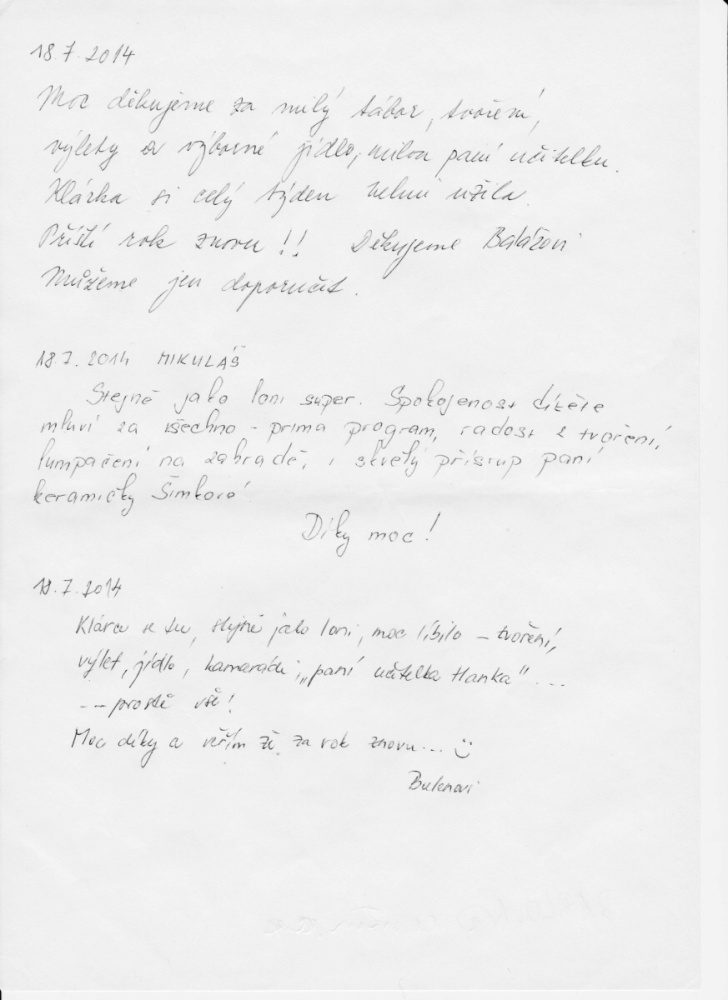 18.7.2014
Moc děkujeme za milý tábor, tvoření,
výlety a výborné jídlo, milou paní učitelku.
Klárka si celý týden velmi užila.
Příští rok znovu!! Děkujeme Balážovi
Můžeme jen doporučit.
18 7. 2014 MIKULÁŠ
Stejně jako loni super. Spokojenost dítěte
mluví za všechno - prima program, radost z tvoření,
lumpačení na zahradě, i skvělý přístup paní
keramičky Šimkové
Díky moc!
18.7.2014
Kláru se tu, stejně jako loni, moc líbilo - tvoření,
výlet, jídlo, kamarádi, „paní učitelka Hanka" ...
-- prostě vše!
Moc díky a věřím že za rok znovu... :)